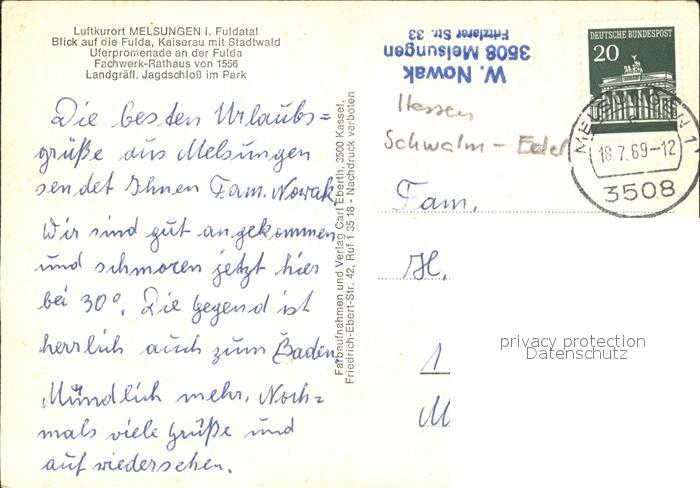 Luftkurort MELSUNGEN i. Fuldatal
Blick auf die Fulda, Kaiserau mit Stadtwald
Uferpromenade an der Fulda
Fachwerk-Rathaus von 1556
Landgräfl. Jagdschloß im Park
Die besten Urlaubs=
grüße aus Melsungen
sendet Ihnen Fam. Nowak
Wir sind gut angekommen
und schmoren jetzt hier
bei 30°. Die Gegend ist
herrlich auch zum Baden
Mündlich mehr. Noch=
mals viele Grüße und
auf wiedersehen.
Farbaufnahmen und Verlag Carl Eberth, 3500 Kassel,
Friedrich-Ebert-Str. 42, Ruf 1 35 18 - Nachdruck verboten
W. Nowak
3508 Melsungen
Fritzlarer Str. 33
Hessen
Schwalm - Eder
DEUTSCHE BUNDESPOST
20
MELSUNGEN 1
18.7.69-12
3508
Fam.
H.
1
M
privacy protection
Datenschutz